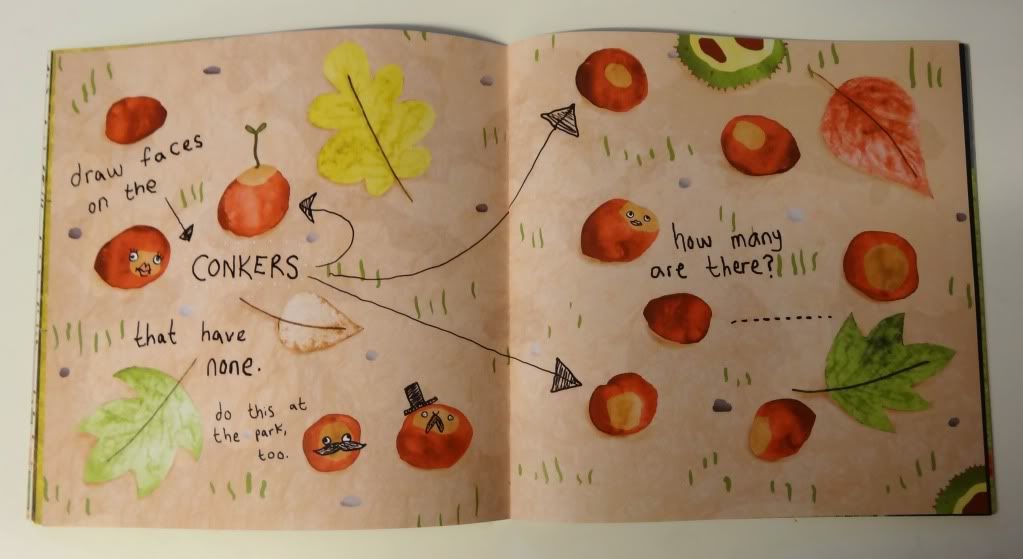 draw faces
on the
CONKERS
that have
none.
do this at
the park,
too.
how many
are there?